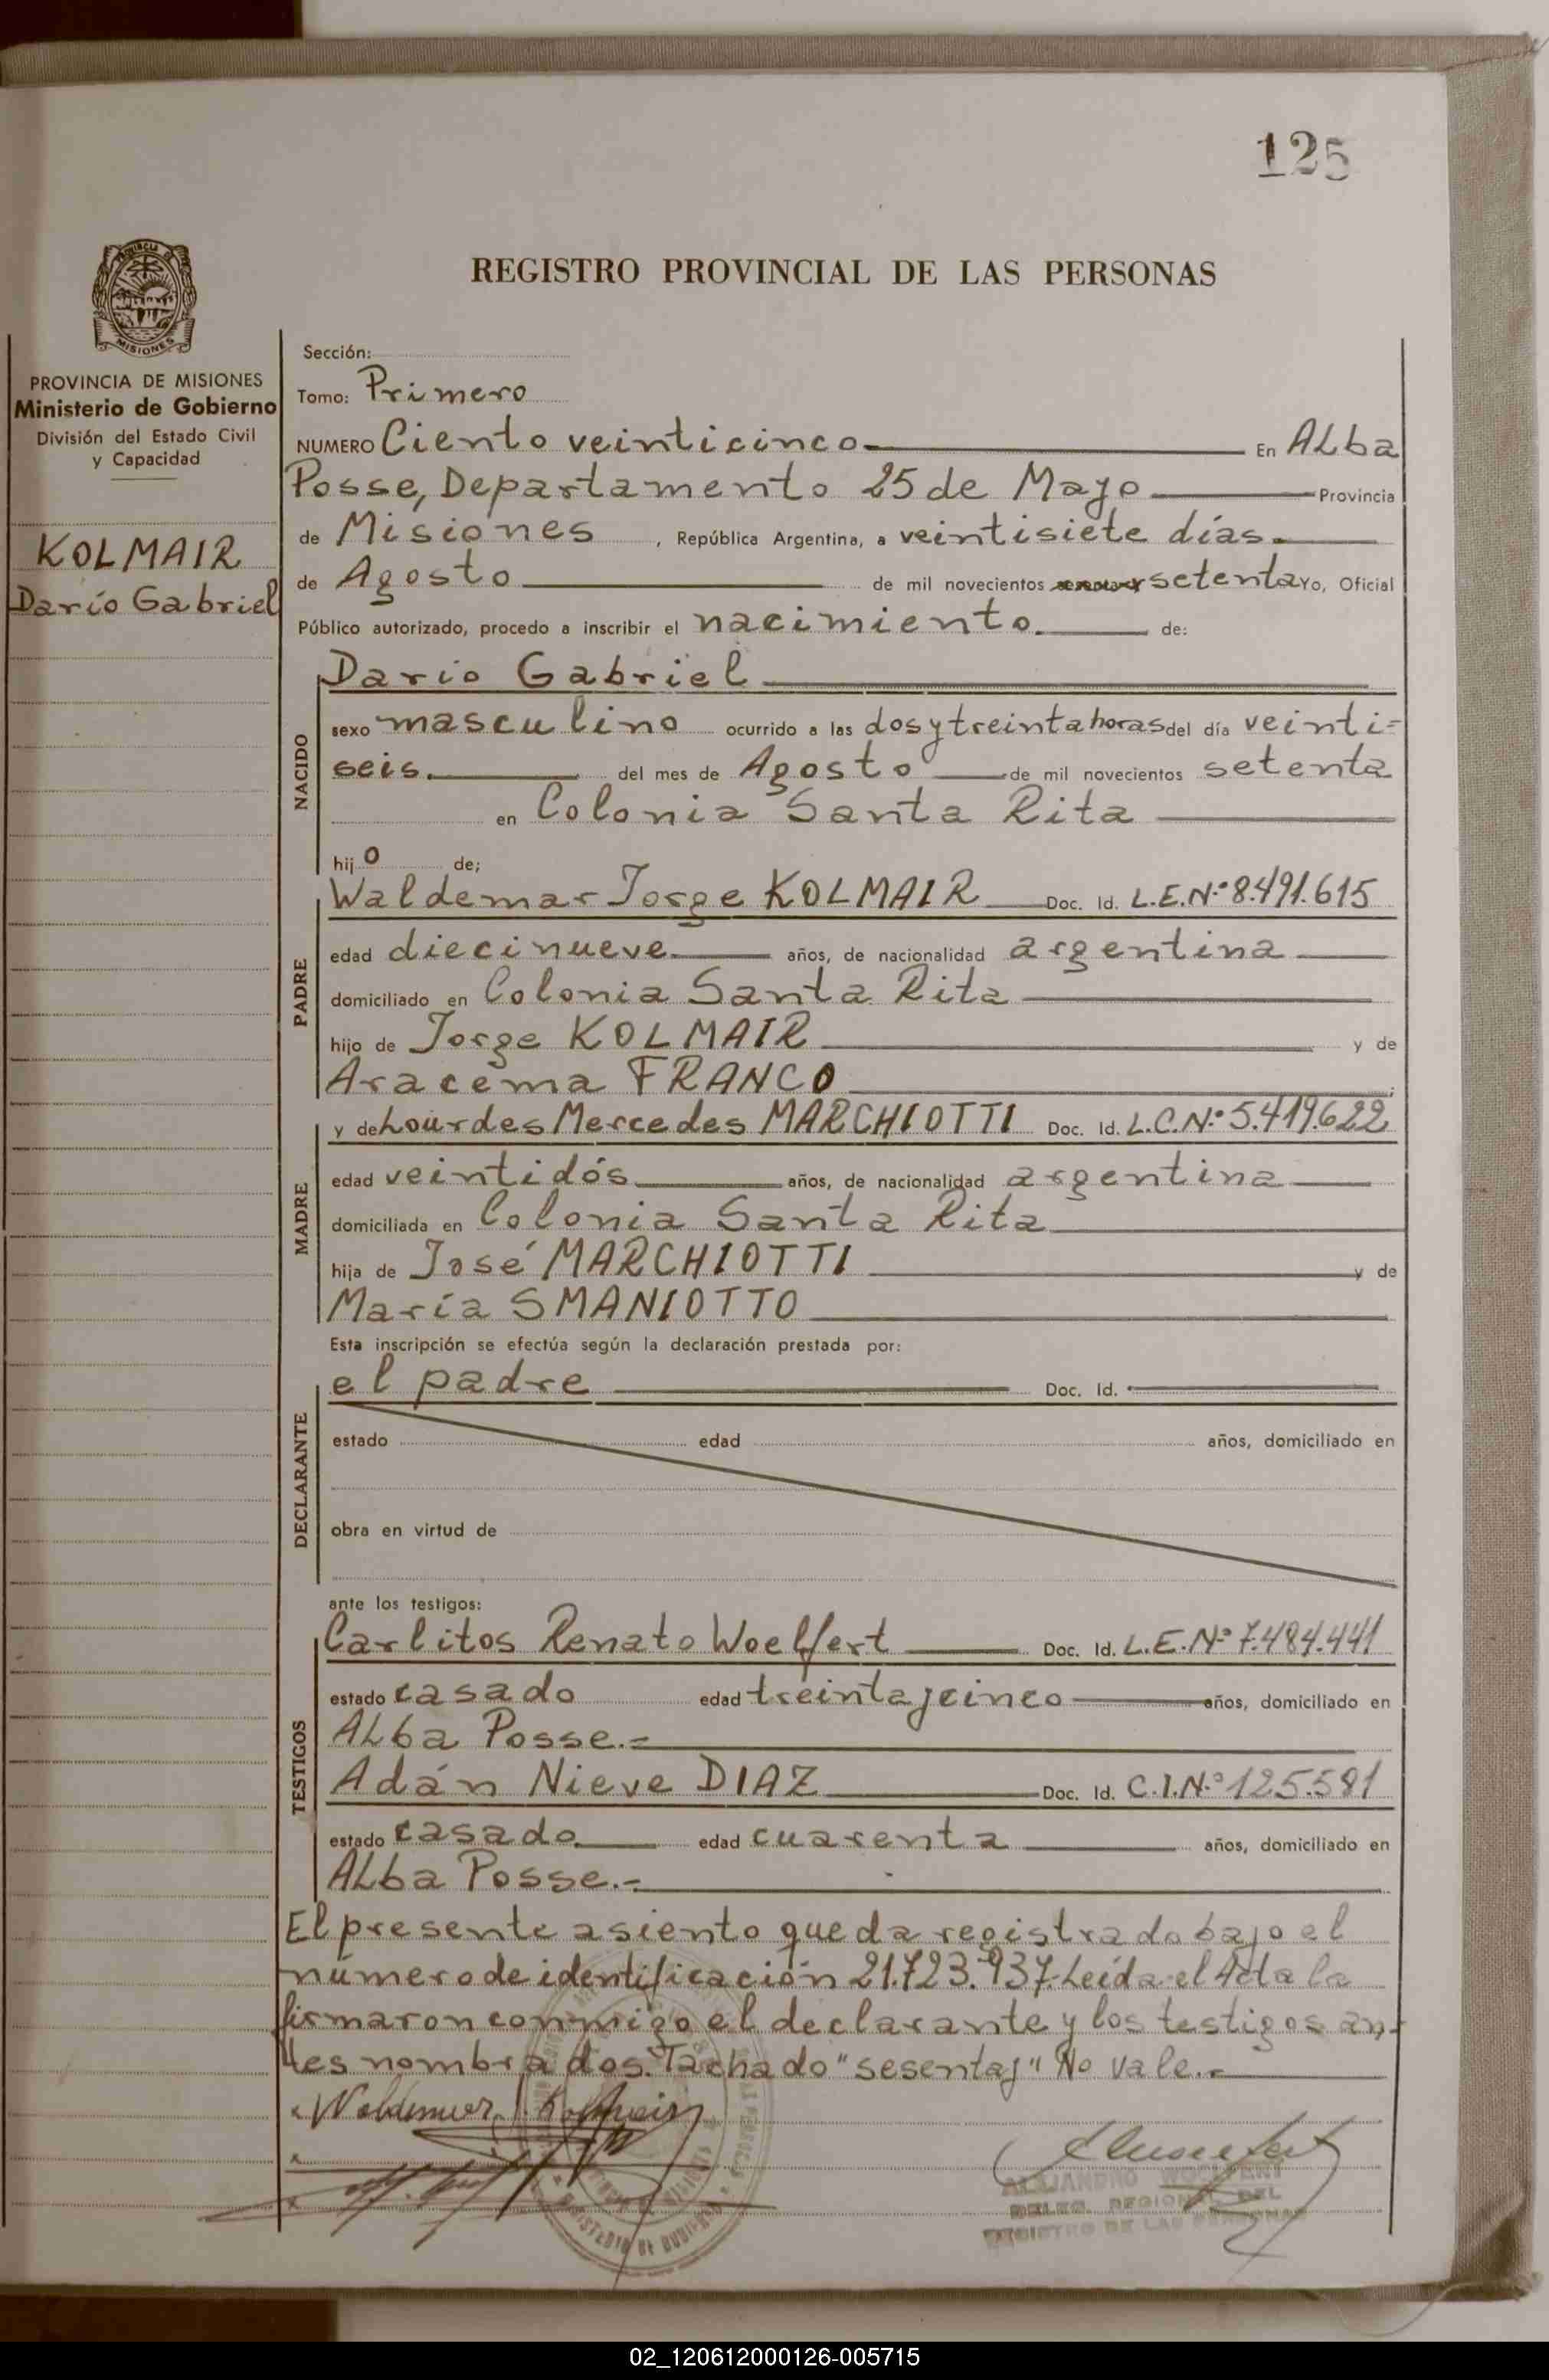 125
PROVINCIA DE MISIONES
Ministerio de Gobierno
División del Estado Civil
y Capacidad
KOLMAIR
Darío Gabriel
REGISTRO PROVINCIAL DE LAS PERSONAS
Sección:
Tomo: Primero
NUMERO Ciento veinticinco En ALba
Posse, Departamento 25 de Mayo Provincia
de Misiones, República Argentina, a veintisiete días.
de Agosto de mil novecientos setenta Yo, Oficial
Público autorizado, procedo a inscribir el nacimiento. de:
NACIDO
Darío Gabriel
sexo masculino ocurrido a las dos y treinta horas del día veinti=
seis. del mes de Agosto de mil novecientos setenta
en Colonia Santa Rita
hijo de;
PADRE
Waldemar Jorge KOLMAIR Doc. Id. L.E.Nº 8.491.615
edad diecinueve años, de nacionalidad argentina
domiciliado en Colonia Santa Rita
hijo de Jorge KOLMAIR y de
Aracema FRANCO
MADRE
y de Lourdes Mercedes MARCHIOTTI Doc. Id. L.C.Nº 5.419.622
edad veintidós años, de nacionalidad argentina
domiciliada en Colonia Santa Rita
hija de José MARCHIOTTI y de
María SMANIOTTO
Esta inscripción se efectúa según la declaración prestada por:
DECLARANTE
el padre Doc. Id.
estado edad años, domiciliado en
obra en virtud de
ante los testigos:
TESTIGOS
Carlitos Renato Woelfert Doc. Id. L.E.Nº 7.484.441
estado casado edad treinta y cinco años, domiciliado en
ALba Posse.=
Adán Nieve DIAZ Doc. Id. C.I.Nº 125.581
estado casado edad cuarenta años, domiciliado en
ALba Posse.-
El presente asiento queda registrado bajo el
número de identificación 21.723.937. Leída el Acta la
firmaron conmigo el declarante y los testigos an-
tes nombrados. Tachado "sesentay" No vale.-
Waldemar J. Kolmair
ALEJANDRO WOELFERT
DELEG. REGIONAL DEL
REGISTRO DE LAS PERSONAS
02_120612000126-005715